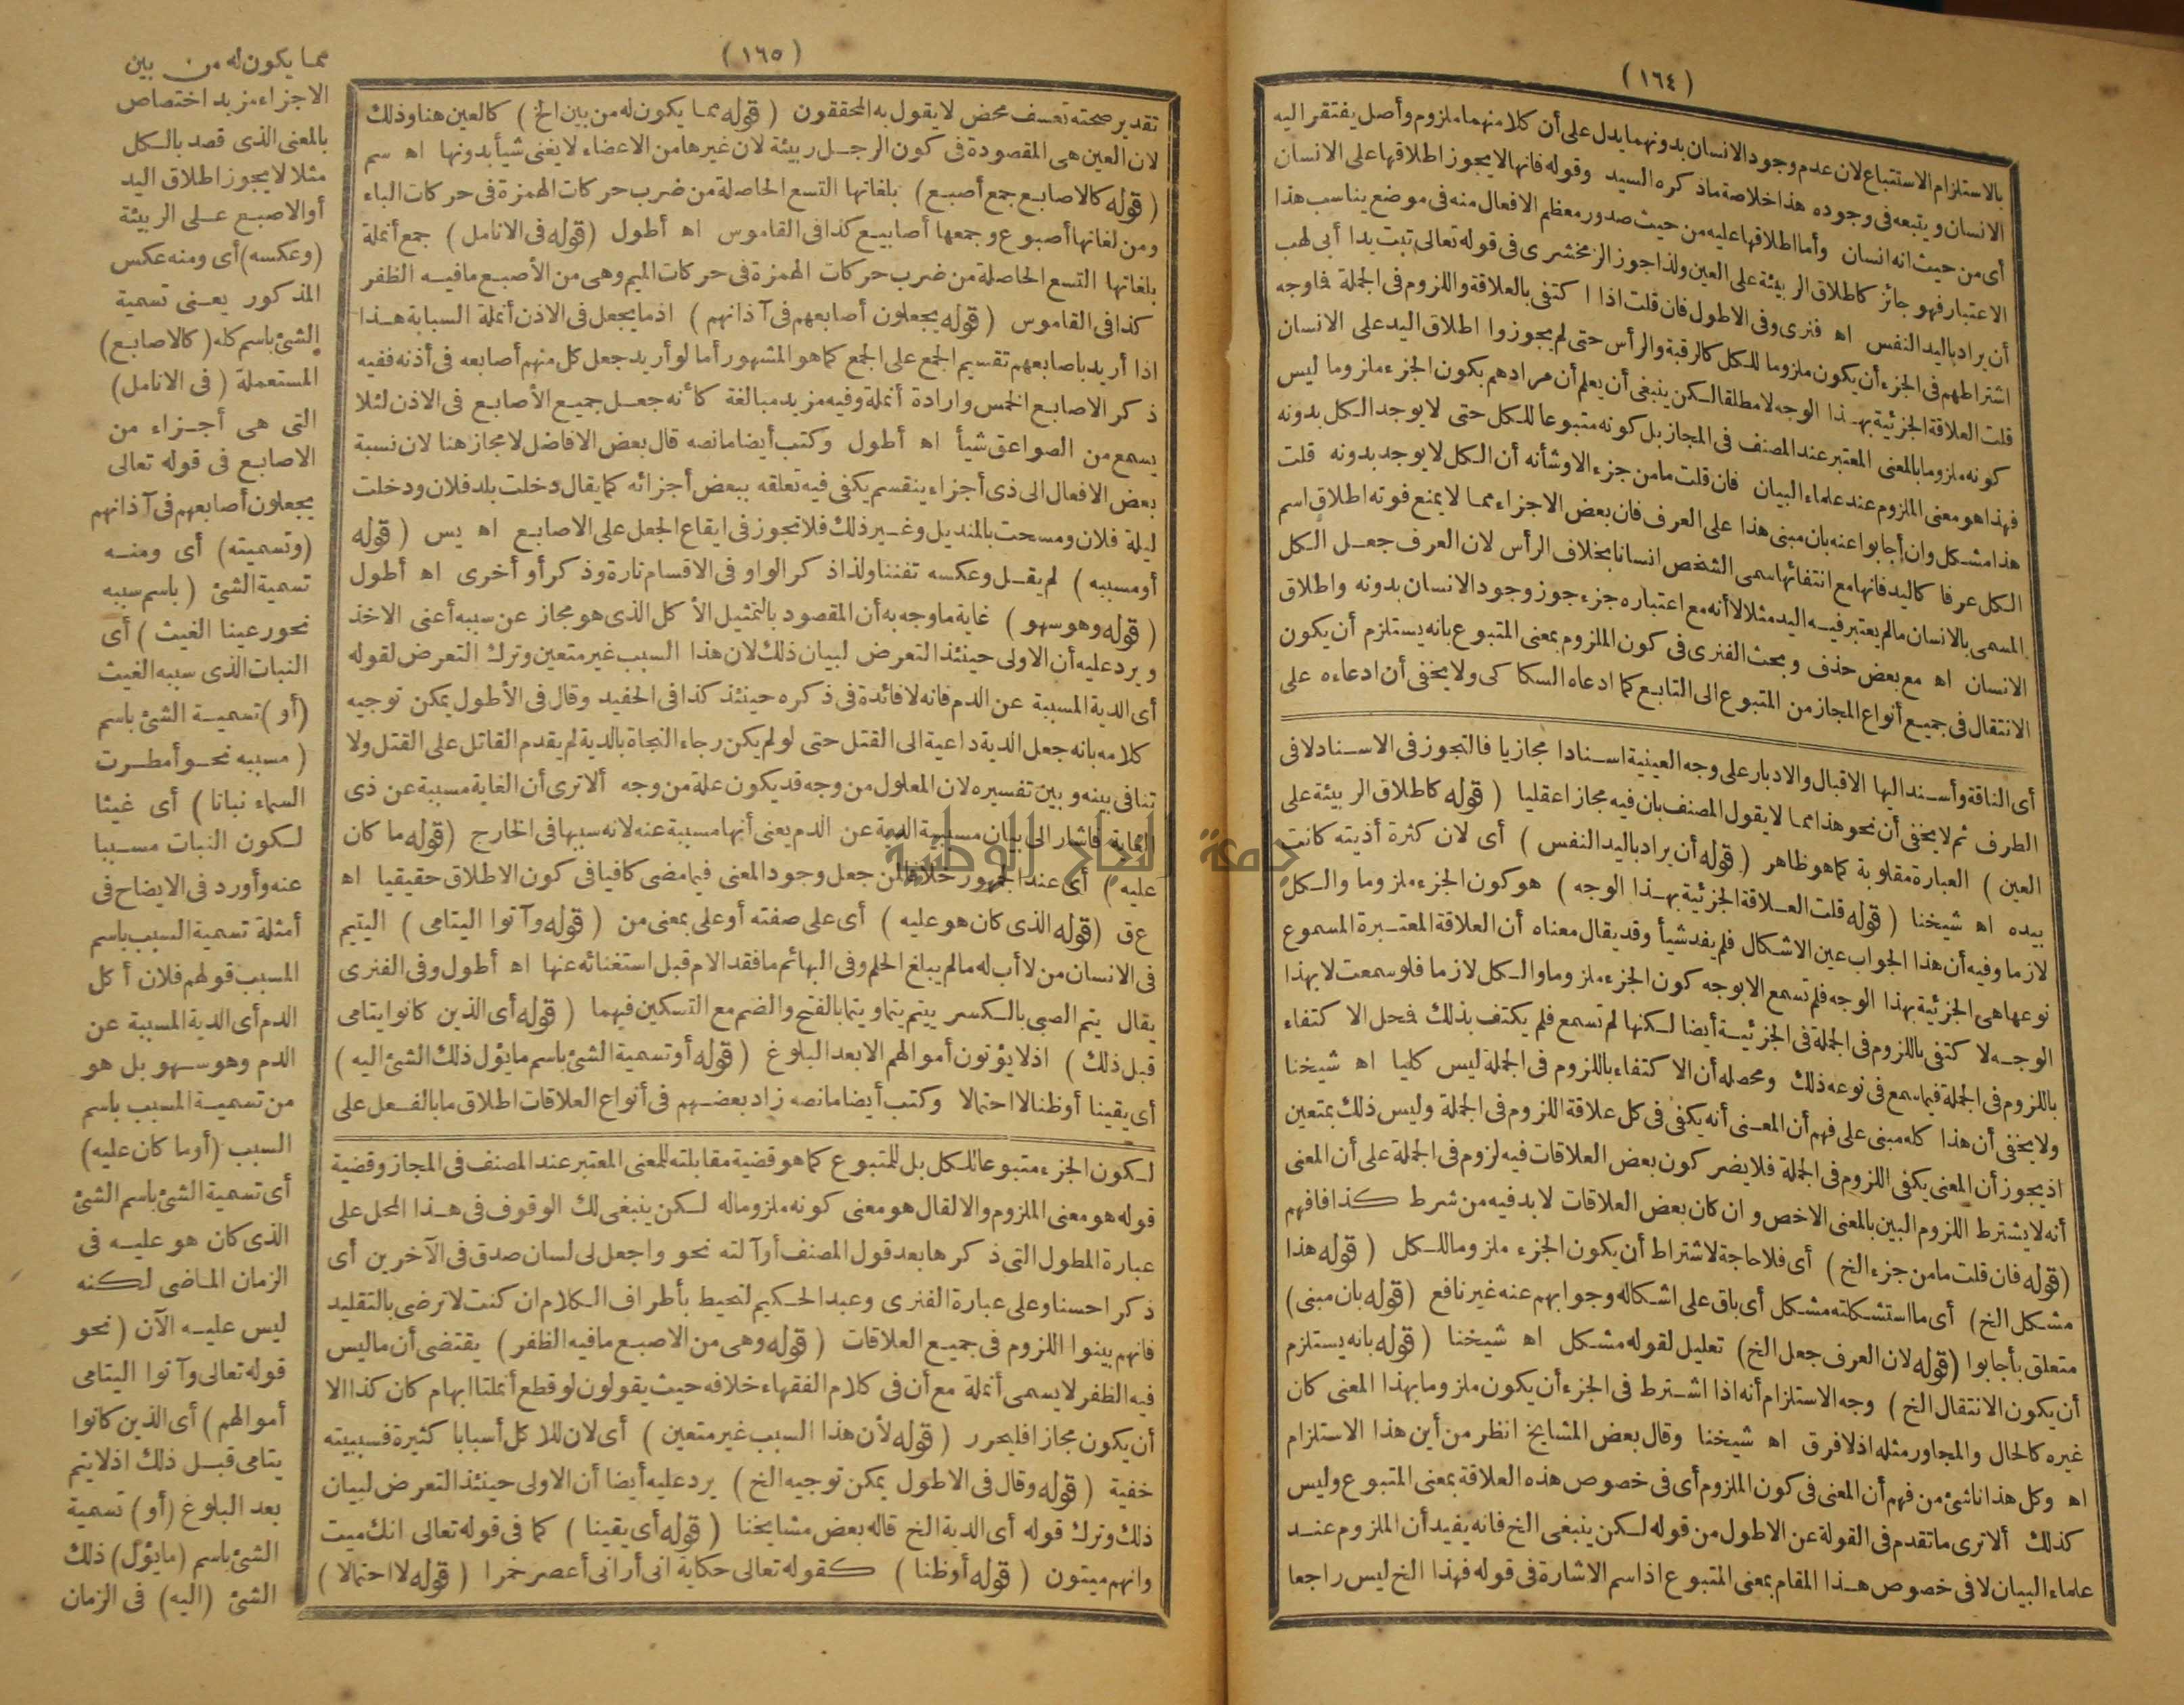 (١٦٤)
بالاستلزام الاستتباع لان عدم وجود الانسان بدونهما يدل على أن كلا منهما ملزوم وأصل يفتقر اليه
الانسان ويتبعه فى وجوده هذا خلاصة ماذكره السيد وقوله فانها لا يجوز اطلاقها على الانسان
أى من حيث انه انسان وأما اطلاقها عليه من حيث صدور معظم الافعال منه فى موضع يناسب هذا
الاعتبار فهو جائز كاطلاق الربيئة على العين ولذا جوز الزمخشرى فى قوله تعالى تبت يدا أبى لهب
أن يراد باليد النفس اه فنرى وفى الاطول فان قلت اذا اكتفى بالعلاقة واللزوم فى الجملة فاوجه
اشتراطهم فى الجزء أن يكون ملزوما للكل كالرقبة والرأس حتى لم يجوزوا اطلاق اليد على الانسان
قلت العلاقة الجزئية بهذا الوجه لا مطلقا لكن ينبغى أن يعلم أن مرادهم بكون الجزء ملزوما ليس
كونه ملزوما بالمعنى المعتبر عند المصنف فى المجاز بل كونه متبوعا للكل حتى لا يوجد الكل بدونه
فهذا هو معنى الملزوم عند علماء البيان فان قلت ما من جزء الا وشأنه أن الكل لا يوجد بدونه قلت
هذا مشكل وان أجابوا عنه بان مبنى هذا على العرف فان بعض الاجزاء مما لا يمنع فوته اطلاق اسم
الكل عرفا كاليد فانها مع انتفائها سمى الشخص انسانا بخلاف الرأس لان العرف جعل الكل
المسمى بالانسان ما لم يعتبر فيه اليد مثلا لا أنه مع اعتباره جزء جوز وجود الانسان بدونه واطلاق
الانسان اه مع بعض حذف وبحث الفنرى فى كون الملزوم بمعنى المتبوع بانه يستلزم أن يكون
الانتقال فى جميع أنواع المجاز من المتبوع الى التابع كما ادعاه السكاكى ولا يخفى أن ادعاءه على
أى الناقة وأسند اليها الاقبال والادبار على وجه العينية اسنادا مجازيا فالتجوز فى الاسناد لا فى
الطرف ثم لا يخفى أن نحو هذا مما لا يقول المصنف بان فيه مجازا عقليا (قوله كاطلاق الربيئة على
العين) العبارة مقلوبة كما هو ظاهر (قوله أن يراد باليد النفس) أى لان كثرة أذيته كانت
بيده اه شيخنا (قوله قلت العلاقة الجزئية بهذا الوجه) هو كون الجزء ملزوما والكل
لازما وفيه أن هذا الجواب عين الاشكال فلم يفد شيأ وقد يقال معناه أن العلاقة المعتبرة المسموع
نوعها هى الجزئية بهذا الوجه فلم تسمع الا بوجه كون الجزء ملزوما والكل لازما فلو سمعت لا بهذا
الوجه لا كتفى باللزوم فى الجملة فى الجزئية أيضا لكنها لم تسمع فلم يكتف بذلك فحل الاكتفاء
باللزوم فى الجملة فيما سمع فى نوعه ذلك ومحصله أن الاكتفاء باللزوم فى الجملة ليس كليا اه شيخنا
ولا يخفى أن هذا كله مبنى على فهم أن المعنى أنه يكفى فى كل علاقة اللزوم فى الجملة وليس ذلك بمتعين
اذ يجوز أن المعنى يكفى اللزوم فى الجملة فلا يضر كون بعض العلاقات فيه لزوم فى الجملة على أن المعنى
أنه لا يشترط اللزوم البين بالمعنى الاخص وان كان بعض العلاقات لا بد فيه من شرط كذا فافهم
(قوله فان قلت ما من جزء الخ) أى فلا حاجة لاشتراط أن يكون الجزء ملزوما للكل (قوله هذا
مشكل الخ) أى ما استشكلته مشكل أى باق على اشكاله وجوابهم عنه غير نافع (قوله بان مبنى)
متعلق بأجابوا (قوله لان العرف جعل الخ) تعليل لقوله مشكل اه شيخنا (قوله بانه يستلزم
أن يكون الانتقال الخ) وجه الاستلزام أنه اذا اشترط فى الجزء أن يكون ملزوما بهذا المعنى كان
غيره كالحال والمجاور مثله اذ لا فرق اه شيخنا وقال بعض المشايخ انظر من أين هذا الاستلزام
اه وكل هذا ناشئ من فهم أن المعنى فى كون الملزوم أى فى خصوص هذه العلاقة بمعنى المتبوع وليس
كذلك ألا ترى ما تقدم فى القولة عن الاطول من قوله لكن ينبغى الخ فانه يفيد أن الملزوم عند
علماء البيان لا فى خصوص هذا المقام بمعنى المتبوع اذ اسم الاشارة فى قوله فهذا الخ ليس راجعا
(١٦٥)
تقدير صحته تعسف محض لا يقول به المحققون (قوله مما يكون له من بين الخ) كالعين هنا وذلك
لان العين هى المقصودة فى كون الرجل ربيئة لان غيرها من الاعضاء لا يغنى شيأ بدونها اه سم
(قوله كالاصابع جمع أصبع) بلغاتها التسع الحاصلة من ضرب حركات الهمزة فى حركات الباء
ومن لغاتها أصبوع وجمعها أصابيع كذا فى القاموس اه أطول (قوله فى الانامل) جمع أنملة
بلغاتها التسع الحاصلة من ضرب حركات الهمزة فى حركات الميم وهى من الأصبع ما فيه الظفر
كذا فى القاموس (قوله يجعلون أصابعهم فى آذانهم) اذ ما يجعل فى الاذن أنملة السبابة هذا
اذا أريد باصابعهم تقسيم الجمع على الجمع كما هو المشهور أما لو أريد جعل كل منهم أصابعه فى أذنه ففيه
ذكر الاصابع الخمس وارادة أنملة وفيه مزيد مبالغة كأنه جعل جميع الأصابع فى الاذن لئلا
يسمع من الصواعق شيأ اه أطول وكتب أيضا ما نصه قال بعض الافاضل لا مجاز هنا لان نسبة
بعض الافعال الى ذى أجزاء ينقسم يكفى فيه تعلقه ببعض أجزائه كما يقال دخلت بلد فلان ودخلت
ليلة فلان ومسحت بالمنديل وغير ذلك فلا تجوز فى ايقاع الجعل على الاصابع اه يس (قوله
أو مسببه) لم يقل وعكسه تفننا ولذا ذكر الواو فى الاقسام تارة وذكر أو أخرى اه أطول
(قوله وهو سهو) غاية ما وجه به أن المقصود بالتمثيل الأكل الذى هو مجاز عن سببه أعنى الاخذ
ويرد عليه أن الاولى حينئذ التعرض لبيان ذلك لان هذا السبب غير متعين وترك التعرض لقوله
أى الدية المسببة عن الدم فانه لا فائدة فى ذكره حينئذ كذا فى الحفيد وقال فى الأطول يمكن توجيه
كلامه بانه جعل الدية داعية الى القتل حتى لو لم يكن رجاء النجاة بالدية لم يقدم القاتل على القتل ولا
تنافى بينه وبين تفسيره لان المعلول من وجه قد يكون علة من وجه ألا ترى أن الغاية مسببة عن ذى
الغاية فاشار الى بيان مسببية الدية عن الدم يعنى أنها مسببة عنه لانه سببها فى الخارج (قوله ما كان
عليه) أى عند الجمهور خلافا لمن جعل وجود المعنى فيما مضى كافيا فى كون الاطلاق حقيقيا اه
ع ق (قوله الذى كان هو عليه) أى على صفته أو على بمعنى من (قوله وآتوا اليتامى) اليتيم
فى الانسان من لا أب له ما لم يبلغ الحلم وفى البهائم ما فقد الام قبل استغنائه عنها اه أطول وفى الفنرى
يقال يتم الصبى بالكسر ييتم يتما ويتما بالفتح والضم مع التسكين فيهما (قوله أى الذين كانوا يتامى
قبل ذلك) اذ لا يؤتون أموالهم الا بعد البلوغ (قوله أو تسمية الشئ باسم ما يؤل ذلك الشئ اليه)
أى يقينا أو ظنا لا احتمالا وكتب أيضا ما نصه زاد بعضهم فى أنواع العلاقات اطلاق ما بالفعل على
لكون الجزء متبوعا للكل بل للمتبوع كما هو قضية مقابلته للمعنى المعتبر عند المصنف فى المجاز وقضية
قوله هو معنى الملزوم والا لقال هو معنى كونه ملزوما له لكن ينبغى لك الوقوف فى هذا المحل على
عبارة المطول التى ذكرها بعد قول المصنف أو آلته نحو واجعل لى لسان صدق فى الآخرين أى
ذكرا حسنا وعلى عبارة الفنرى وعبد الحكيم لتحيط بأطراف الكلام ان كنت لا ترضى بالتقليد
فانهم بينوا اللزوم فى جميع العلاقات (قوله وهى من الاصبع ما فيه الظفر) يقتضى أن ما ليس
فيه الظفر لا يسمى أنملة مع أن فى كلام الفقهاء خلافه حيث يقولون لو قطع أنملتا ابهام كان كذا الا
أن يكون مجازا فليحرر (قوله لأن هذا السبب غير متعين) أى لان للاكل أسبابا كثيرة فسببيته
خفية (قوله وقال فى الاطول يمكن توجيه الخ) يرد عليه أيضا أن الاولى حينئذ التعرض لبيان
ذلك وترك قوله أى الدية الخ قاله بعض مشايخنا (قوله أى يقينا) كما فى قوله تعالى انك ميت
وانهم ميتون (قوله أو ظنا) كقوله تعالى حكاية انى أرانى أعصر خمرا (قوله لا احتمالا)
مما يكون له من بين
الاجزاء مزيد اختصاص
بالمعنى الذى قصد بالكل
مثلا لا يجوز اطلاق اليد
أو الاصبع على الربيئة
(وعكسه) أى ومنه عكس
المذكور يعنى تسمية
الشئ باسم كله (كالاصابع)
المستعملة (فى الانامل)
التى هى أجزاء من
الاصابع فى قوله تعالى
يجعلون أصابعهم فى آذانهم
(وتسميته) أى ومنه
تسمية الشئ (باسم سببه
نحو رعينا الغيث) أى
النبات الذى سببه الغيث
(أو) تسمية الشئ باسم
(مسببه نحو أمطرت
السماء نباتا) أى غيثا
لكون النبات مسببا
عنه وأورد فى الايضاح فى
أمثلة تسمية السبب باسم
المسبب قولهم فلان أكل
الدم أى الدية المسببة عن
الدم وهو سهو بل هو
من تسمية المسبب باسم
السبب (أو ما كان عليه)
أى تسمية الشئ باسم الشئ
الذى كان هو عليه فى
الزمان الماضى لكنه
ليس عليه الآن (نحو
قوله تعالى وآتوا اليتامى
أموالهم) أى الذين كانوا
يتامى قبل ذلك اذ لا يتم
بعد البلوغ (أو) تسمية
الشئ باسم (ما يؤل) ذلك
الشئ (اليه) فى الزمان
جامعة النجاح الوطنية